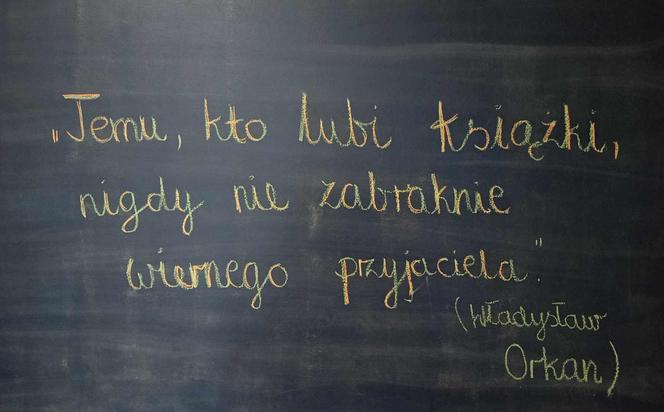 „Temu, kto lubi książki,
nigdy nie zabraknie
wiernego przyjaciela."
(Władysław
Orkan)